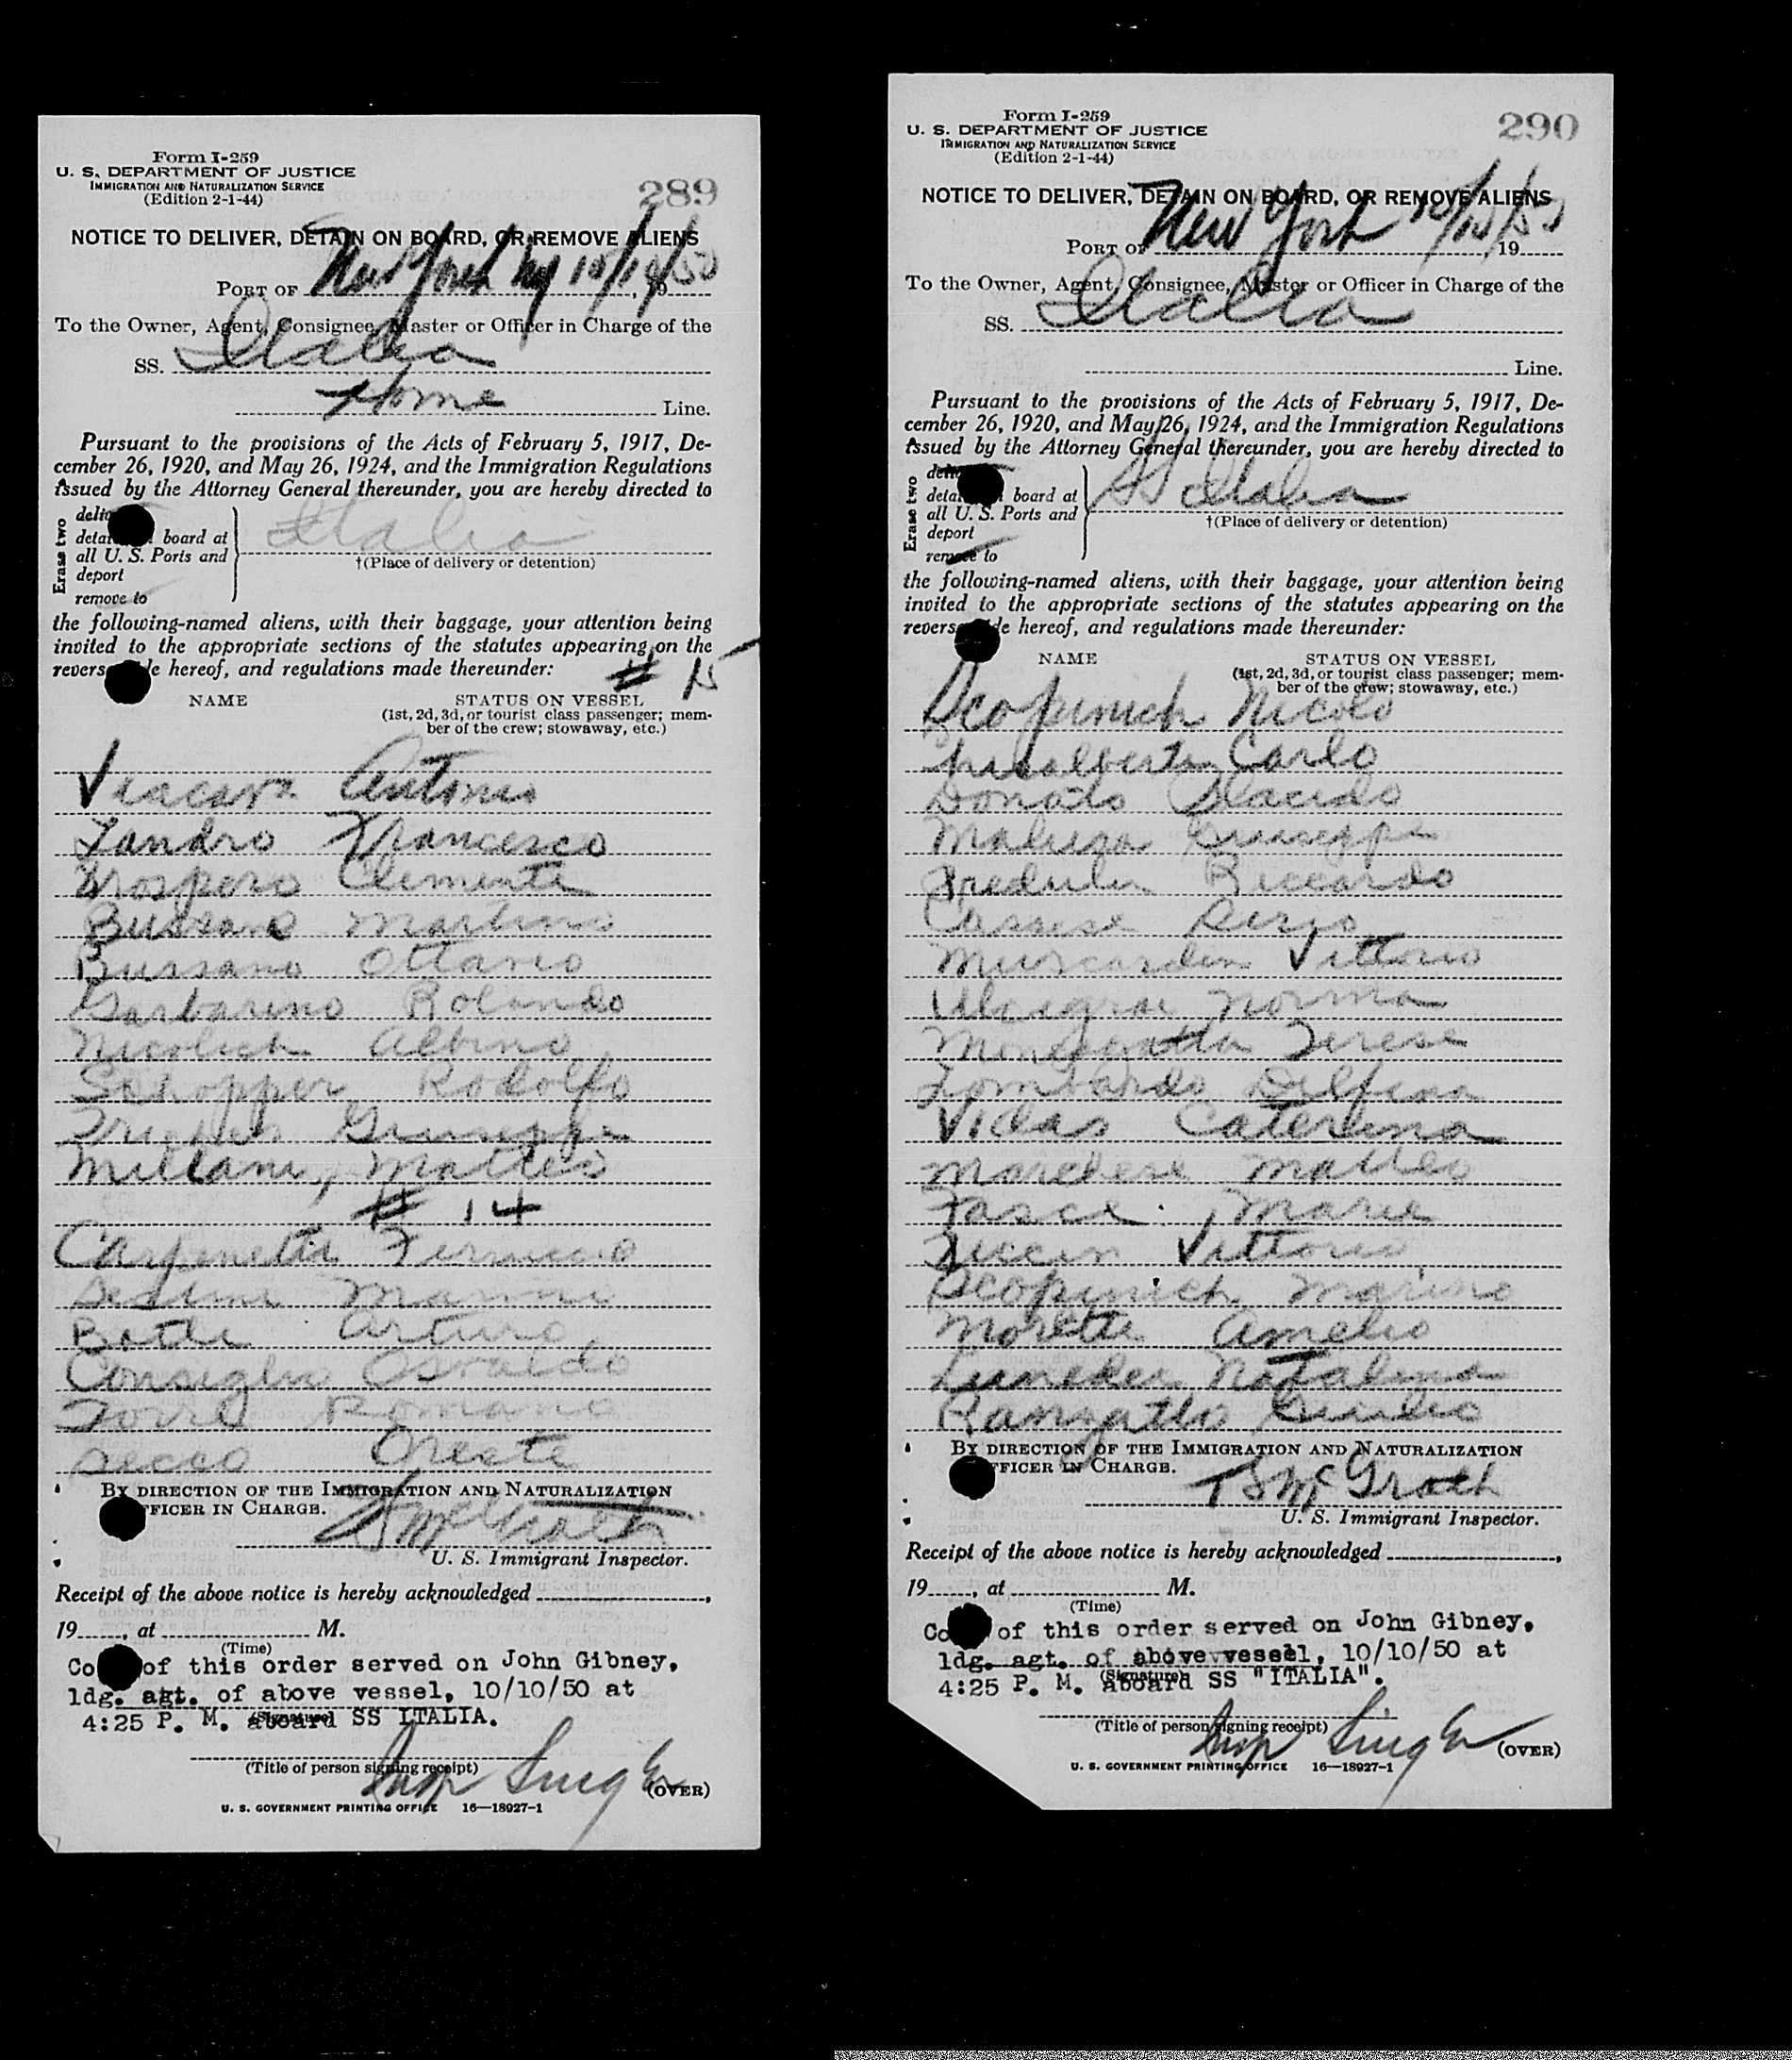 Form I-259
U. S. DEPARTMENT OF JUSTICE
IMMIGRATION AND NATURALIZATION SERVICE
(Edition 2-1-44)
289
NOTICE TO DELIVER, DETAIN ON BOARD, OR REMOVE ALIENS
PORT OF New York NY 10/10/50, 19
To the Owner, Agent, Consignee, Master or Officer in Charge of the
SS. Italia
Home Line.
Pursuant to the provisions of the Acts of February 5, 1917, De-
cember 26, 1920, and May 26, 1924, and the Immigration Regulations
issued by the Attorney General thereunder, you are hereby directed to
Erase two
board at
all U. S. Ports and
deport
remove to
Italia
†(Place of delivery or detention)
the following-named aliens, with their baggage, your attention being
invited to the appropriate sections of the statutes appearing on the
hereof, and regulations made thereunder:
# 15
NAME STATUS ON VESSEL
(1st, 2d, 3d, or tourist class passenger; mem-
ber of the crew; stowaway, etc.)
Viacava Antonio
Landro Francesco
Prospero Clemente
Bussano Martino
Bussano Ottavio
Garbarino Rolando
Nicolich Albino
Schopper Rodolfo
Giuseppe
Millani, Matteo
# 14
Carpinetti Ferruccio
Marini
Arturo
Consiglio Osvaldo
Torre Romano
Secco Oreste
BY DIRECTION OF THE IMMIGRATION AND NATURALIZATION
OFFICER IN CHARGE.
McGrath
U. S. Immigrant Inspector.
Receipt of the above notice is hereby acknowledged
19, at M.
(Time)
of this order served on John Gibney,
ldg. agt. of above vessel, 10/10/50 at
4:25 P. M. aboard SS ITALIA.
(Signature)
(Title of person signing receipt)
Insp
(OVER)
U. S. GOVERNMENT PRINTING OFFICE 16—18927-1
Form I-259
U. S. DEPARTMENT OF JUSTICE
IMMIGRATION AND NATURALIZATION SERVICE
(Edition 2-1-44)
290
NOTICE TO DELIVER, DETAIN ON BOARD, OR REMOVE ALIENS
PORT OF New York 10/10/50, 19
To the Owner, Agent, Consignee, Master or Officer in Charge of the
SS. Italia
Line.
Pursuant to the provisions of the Acts of February 5, 1917, De-
cember 26, 1920, and May 26, 1924, and the Immigration Regulations
issued by the Attorney General thereunder, you are hereby directed to
Erase two
board at
all U. S. Ports and
deport
remove to
SS Italia
†(Place of delivery or detention)
the following-named aliens, with their baggage, your attention being
invited to the appropriate sections of the statutes appearing on the
hereof, and regulations made thereunder:
NAME STATUS ON VESSEL
(1st, 2d, 3d, or tourist class passenger; mem-
ber of the crew; stowaway, etc.)
Scopinich Nicolo
Carlo
Donato Placido
Giuseppe
Riccardo
Vittorio
Norma
Terese
Lombardo Delfina
Vidas Caterina
Marchese Matteo
Fasce Marie
Vittorio
Scopinich Marino
Moretti Amelio
Natalina
Ranzatto Giulio
BY DIRECTION OF THE IMMIGRATION AND NATURALIZATION
OFFICER IN CHARGE.
McGrath
U. S. Immigrant Inspector.
Receipt of the above notice is hereby acknowledged
19, at M.
(Time)
of this order served on John Gibney,
ldg. agt. of above vessel, 10/10/50 at
4:25 P. M. aboard SS "ITALIA".
(Signature)
(Title of person signing receipt)
Insp
(OVER)
U. S. GOVERNMENT PRINTING OFFICE 16—18927-1